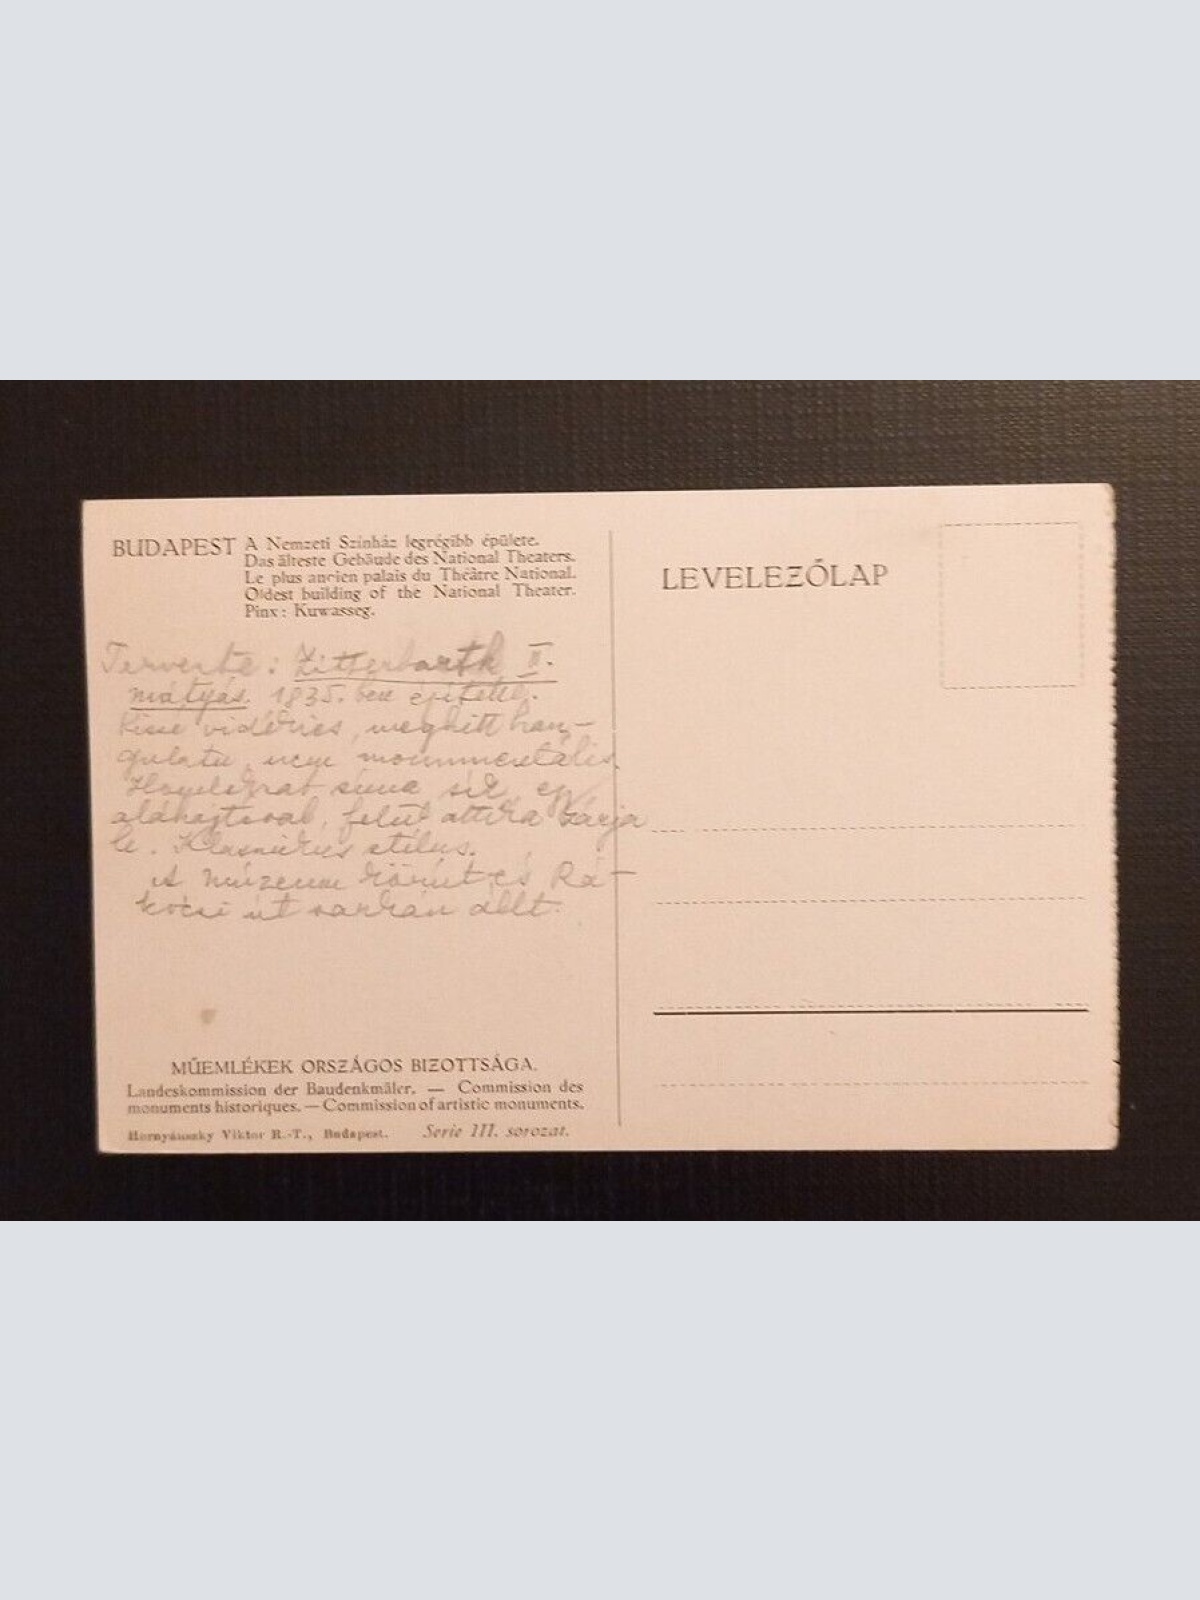 BUDAPEST A Nemzeti Színház legrégibb épülete.
Das älteste Gebäude des National Theaters.
Le plus ancien palais du Théâtre National.
Oldest building of the National Theater.
Pinx: Kuwasseg.
LEVELEZŐLAP
Tervezte: Zitterbarth II.
mátyás. 1835. ben építette.
Kissé vidékies, meghitt han-
gulatu, nem monumentális
sima sík, egy
felül attika zárja
le. Klasszikus stílus.
A múzeum körút és Rá-
kóczi út sarkán állt.
MŰEMLÉKEK ORSZÁGOS BIZOTTSÁGA.
Landeskommission der Baudenkmäler. — Commission des
monuments historiques. — Commission of artistic monuments.
Hornyánszky Viktor R.-T., Budapest. Serie III. sorozat.